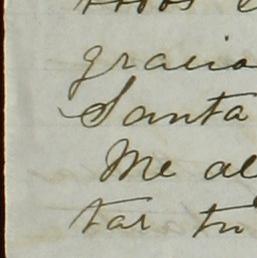 todos
gracia
Santa
Me al
tar tu